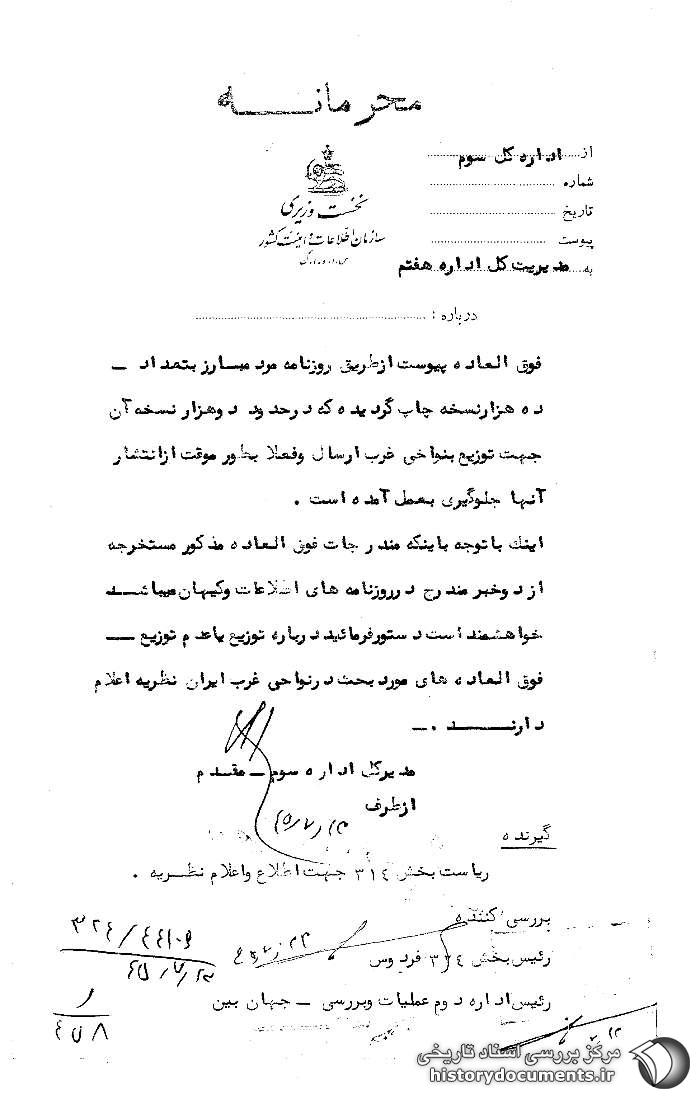 محرمانه
از اداره کل سوم
شماره
تاریخ
پیوست
به مدیریت کل اداره هفتم
نخست وزیری
سازمان اطلاعات و امنیت کشور
س.ا.و.ا.ک
درباره :
فوق العاده پیوست ازطریق روزنامه مرد مبارز بتعداد ـ
ده هزارنسخه چاپ گردیده که درحدود دوهزار نسخه آن
جهت توزیع بنواحی غرب ارسال وفعلا بطور موقت ازانتشار
آنها جلوگیری بعمل آمده است .
اینك باتوجه باینکه مندرجات فوق العاده مذکور مستخرجه
ازدوخبر مندرج درروزنامه های اطلاعات وکیهان میباشد
خواهشمند است دستورفرمائید درباره توزیع یاعدم توزیع ـ
فوق العاده های مورد بحث درنواحی غرب ایران نظریه اعلام
دارند .ـ
مدیرکل اداره سوم ـ مقدم
ازطرف
٤٥/٧/٢٣
گیرنده
ریاست بخش ٣١٤ جهت اطلاع واعلام نظریه .
بررسی کننده
رئیس بخش ٣٢٤ فردوس
رئیس اداره دوم عملیات وبررسی ـ جهان بین
٣٢٤/٤٤١٠٩
٤٥/٧/٢٣
مرکز بررسی اسناد تاریخی
historydocuments.ir